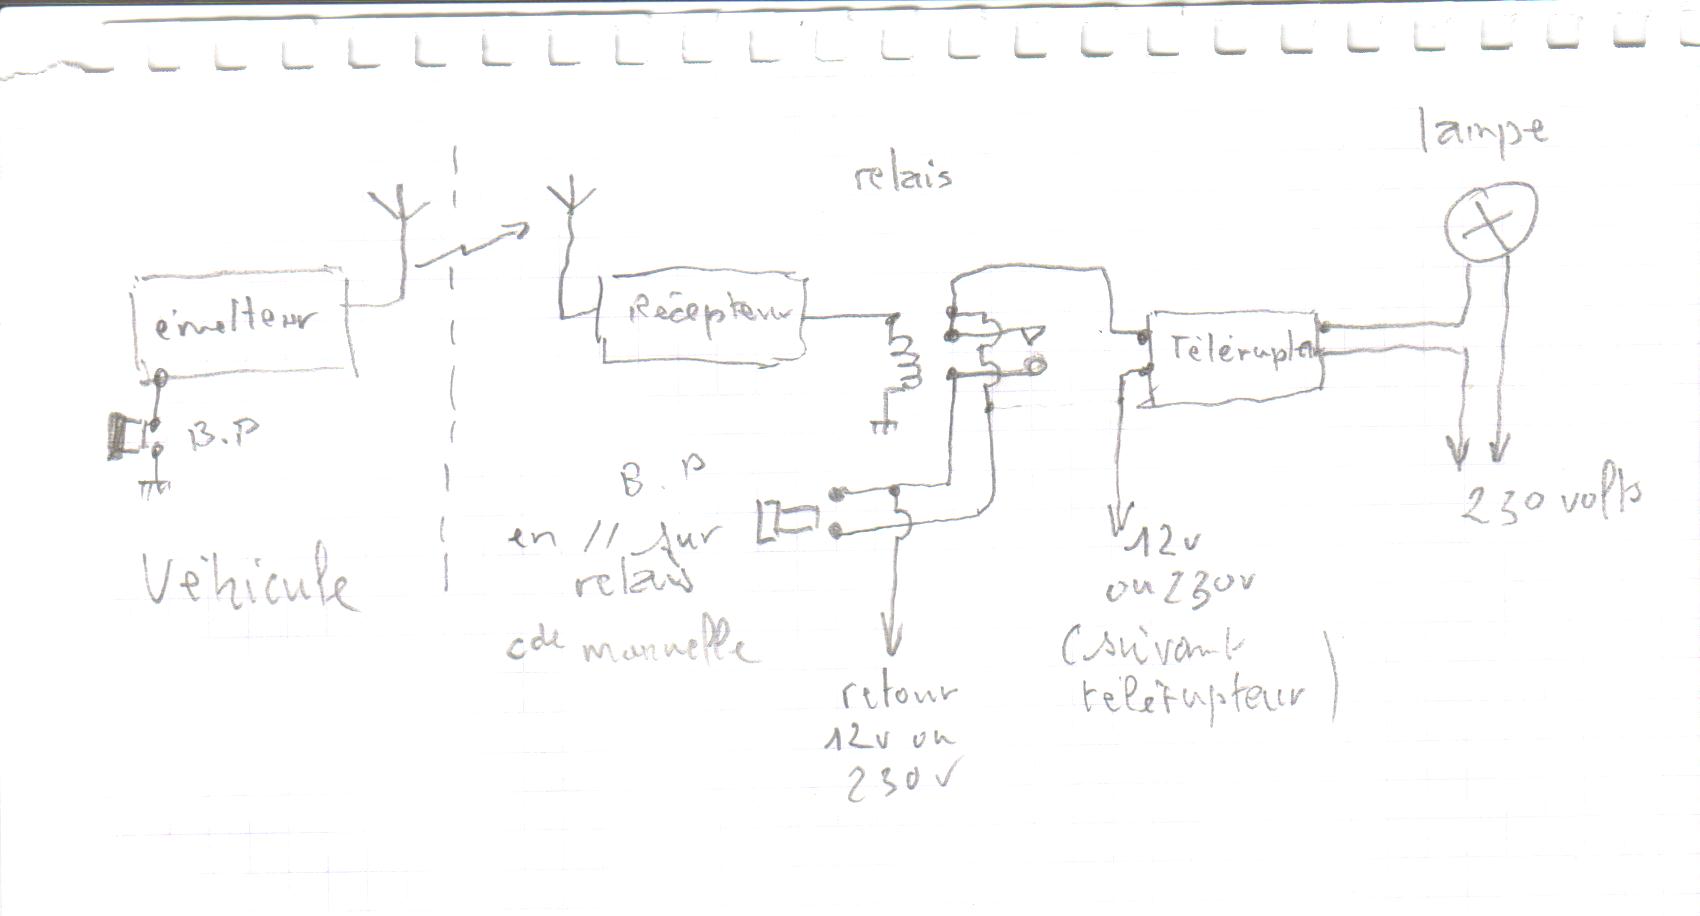 lampe
relais
émetteur
Récepteur
Télérupteur
B.P
B.P
en // sur
relais
cde manuelle
Véhicule
230 volts
12v
ou 230v
(suivant
télérupteur)
retour
12v ou
230v